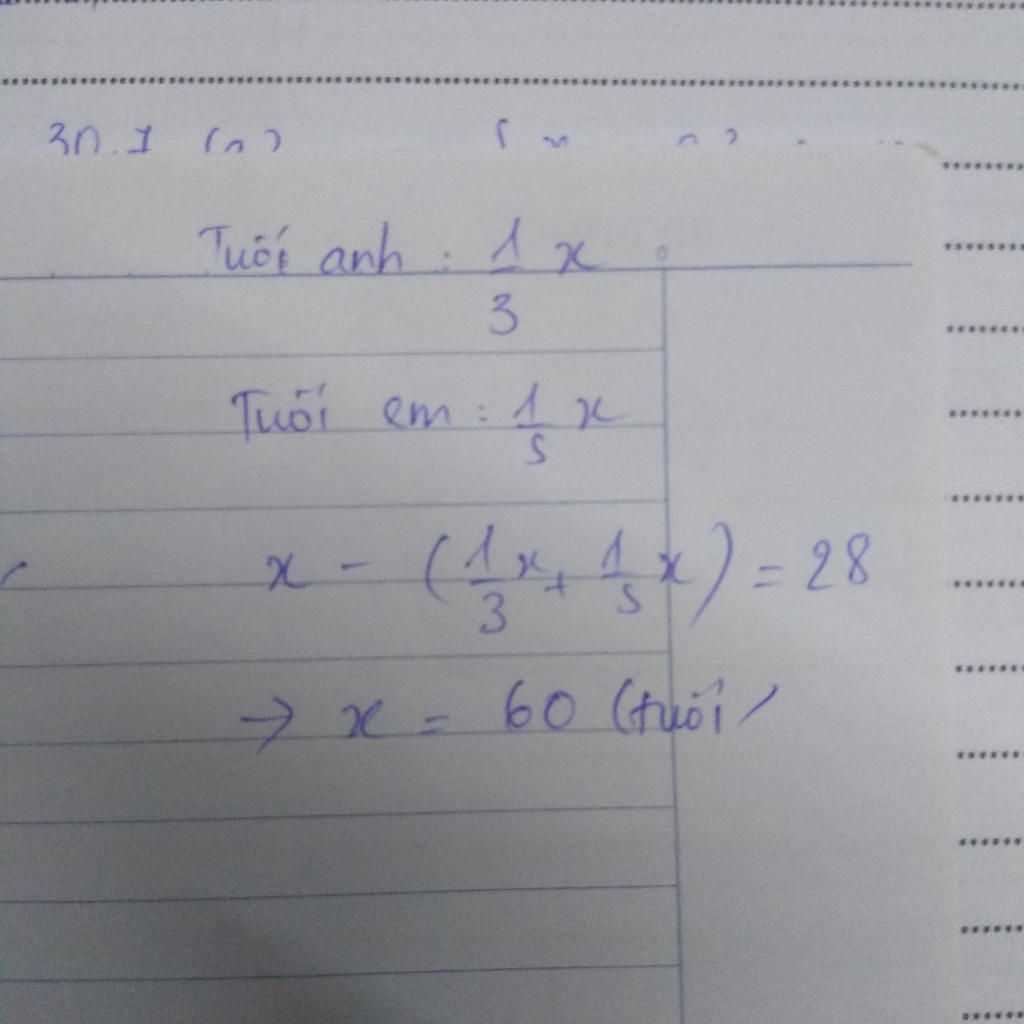 30.1
Tuổi anh : 1/3 x
Tuổi em : 1/5 x
x - (1/3 x + 1/5 x) = 28
→ x = 60 (tuổi)